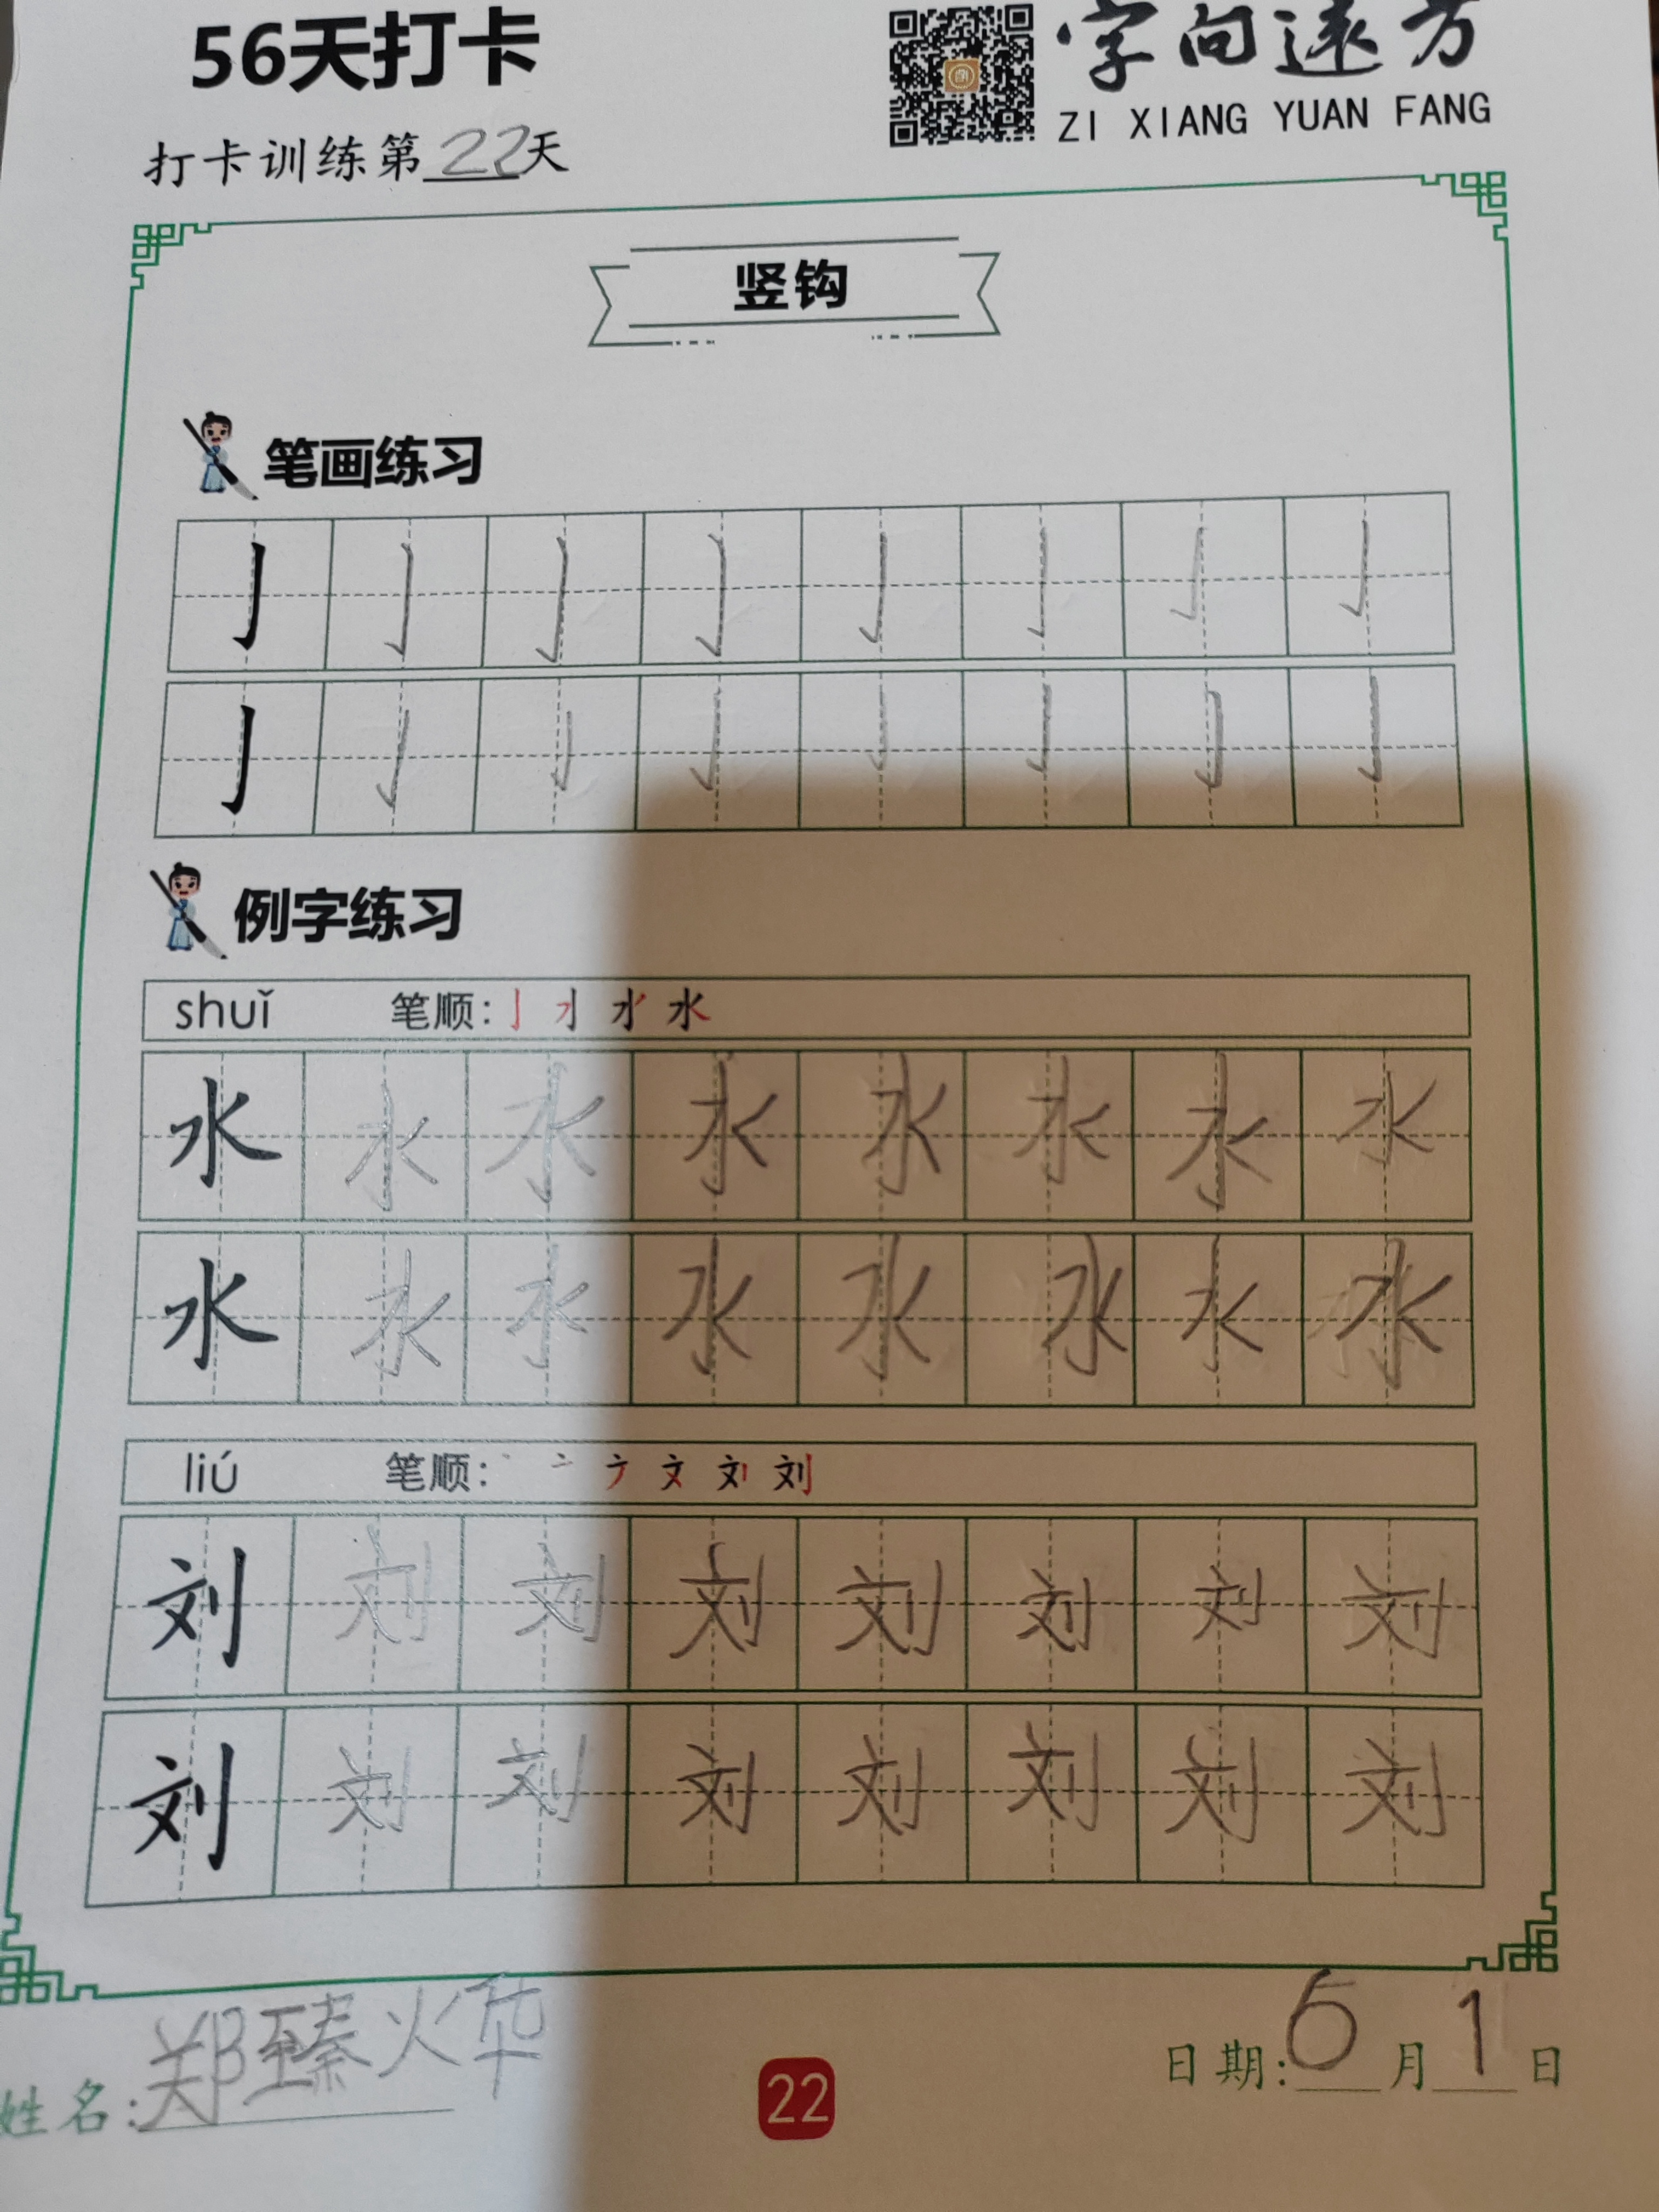 56天打卡
字向远方
ZI XIANG YUAN FANG
打卡训练第22天
竖钩
笔画练习
亅 亅 亅 亅 亅 亅 亅 亅
亅 亅 亅 亅 亅 亅 亅 亅
例字练习
shuǐ 笔顺:
水 水 水 水 水 水 水 水
水 水 水 水 水 水 水 水
liú 笔顺:
刘 刘 刘 刘 刘 刘 刘 刘
刘 刘 刘 刘 刘 刘 刘 刘
姓名:郑臻烨
日期:6月1日
22